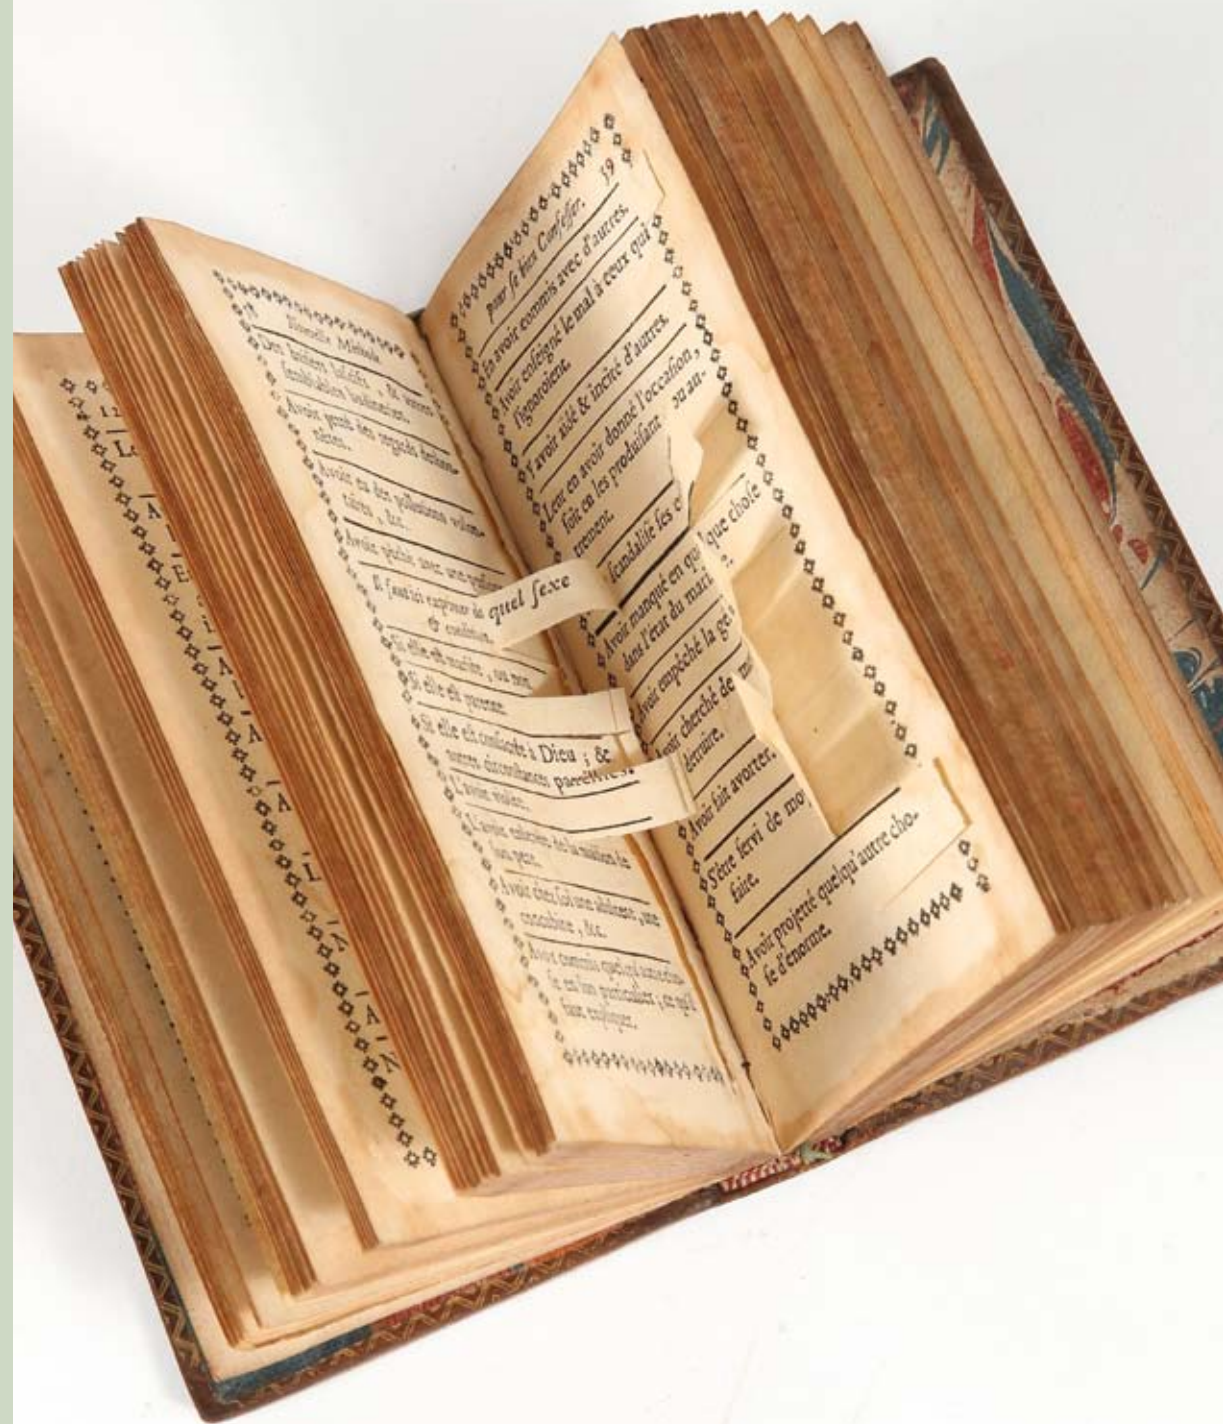 Nouvelle Méthode
Des baisers lascifs, & autres
semblables badineries.
Avoir porté des regards deshon-
nêtes.
Avoir eu des pollutions volon-
taires, &c.
Avoir péché avec une
Il faut ici exprimer de quel ſexe
& condition.
Si elle eſt mariée, ou non.
Si elle eſt parente.
Si elle eſt conſacrée à Dieu ; &
autres circonſtances pareilles.
L'avoir violée.
L'avoir enlevée de la maiſon de
ſon pere.
Avoir chez ſoi une adultere, une
concubine, &c.
Avoir commis quelqu'autre cho-
ſe en ſon particulier ; ce qu'il
faut expliquer.
pour ſe bien Confeſſer. 59
En avoir commis avec d'autres.
Avoir enſeigné le mal à ceux qui
l'ignoroient.
Y avoir aidé & incité d'autres.
Leur en avoir donné l'occaſion,
ſoit en les produiſant ou au-
trement.
ſcandaliſé ſes
Avoir manqué en quelque choſe
dans l'état du
Avoir empêché la
Avoir cherché de
détruire.
Avoir fait avorter.
S'être ſervi de
faire.
Avoir projetté quelqu'autre cho-
ſe d'énorme.